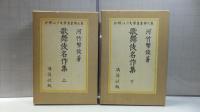 河竹繁俊著
歌舞伎名作集 上
講談社版
河竹繁俊著
歌舞伎名作集 下
講談社版